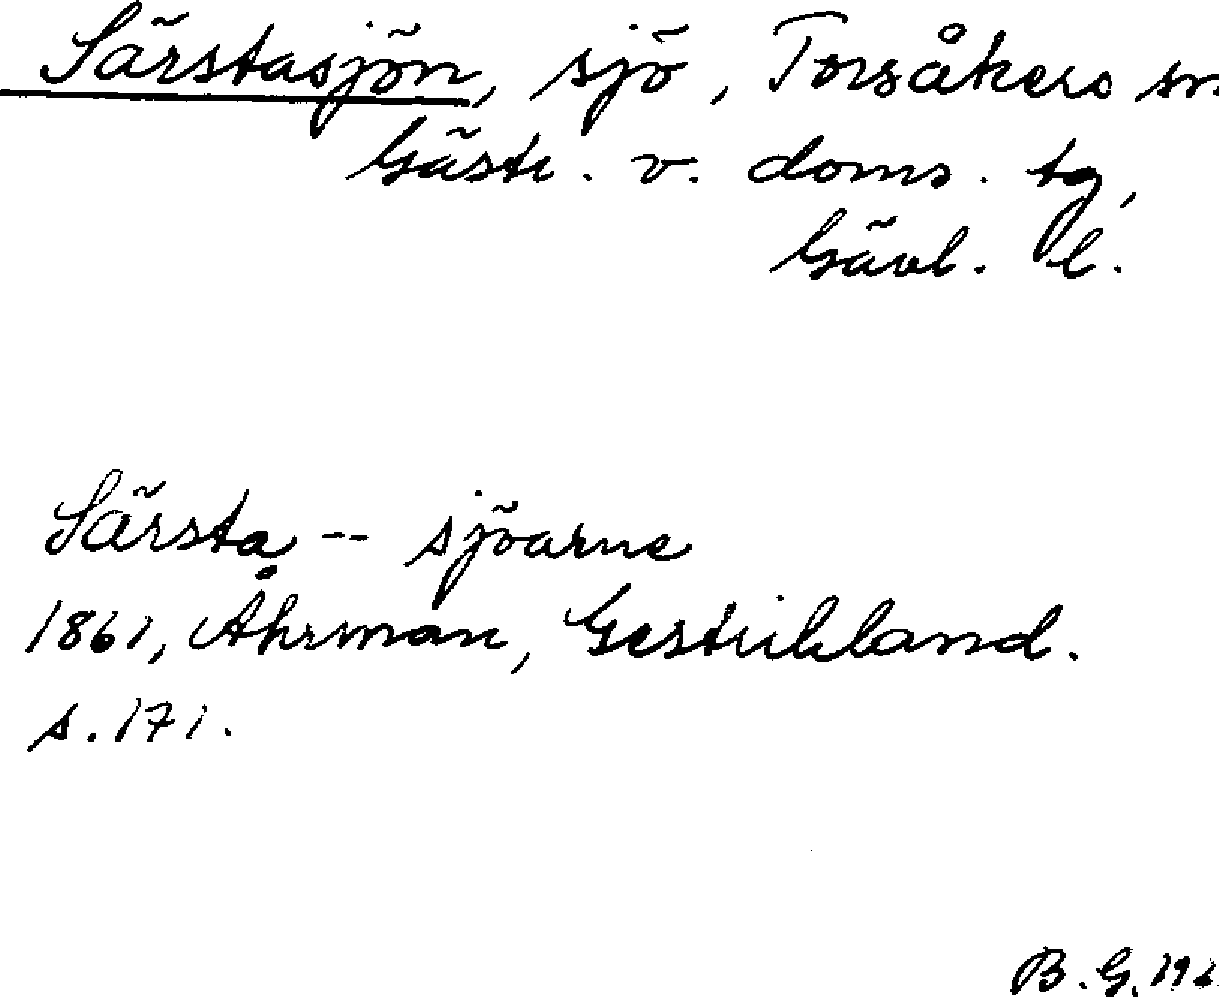 Särstasjön, sjö, Torsåkers sn.
Gästr. v. doms. tg,
Gävl. l.
Särsta -- sjöarne
1861, Åhrman, Gestrikland.
s. 171.
B. G. 196